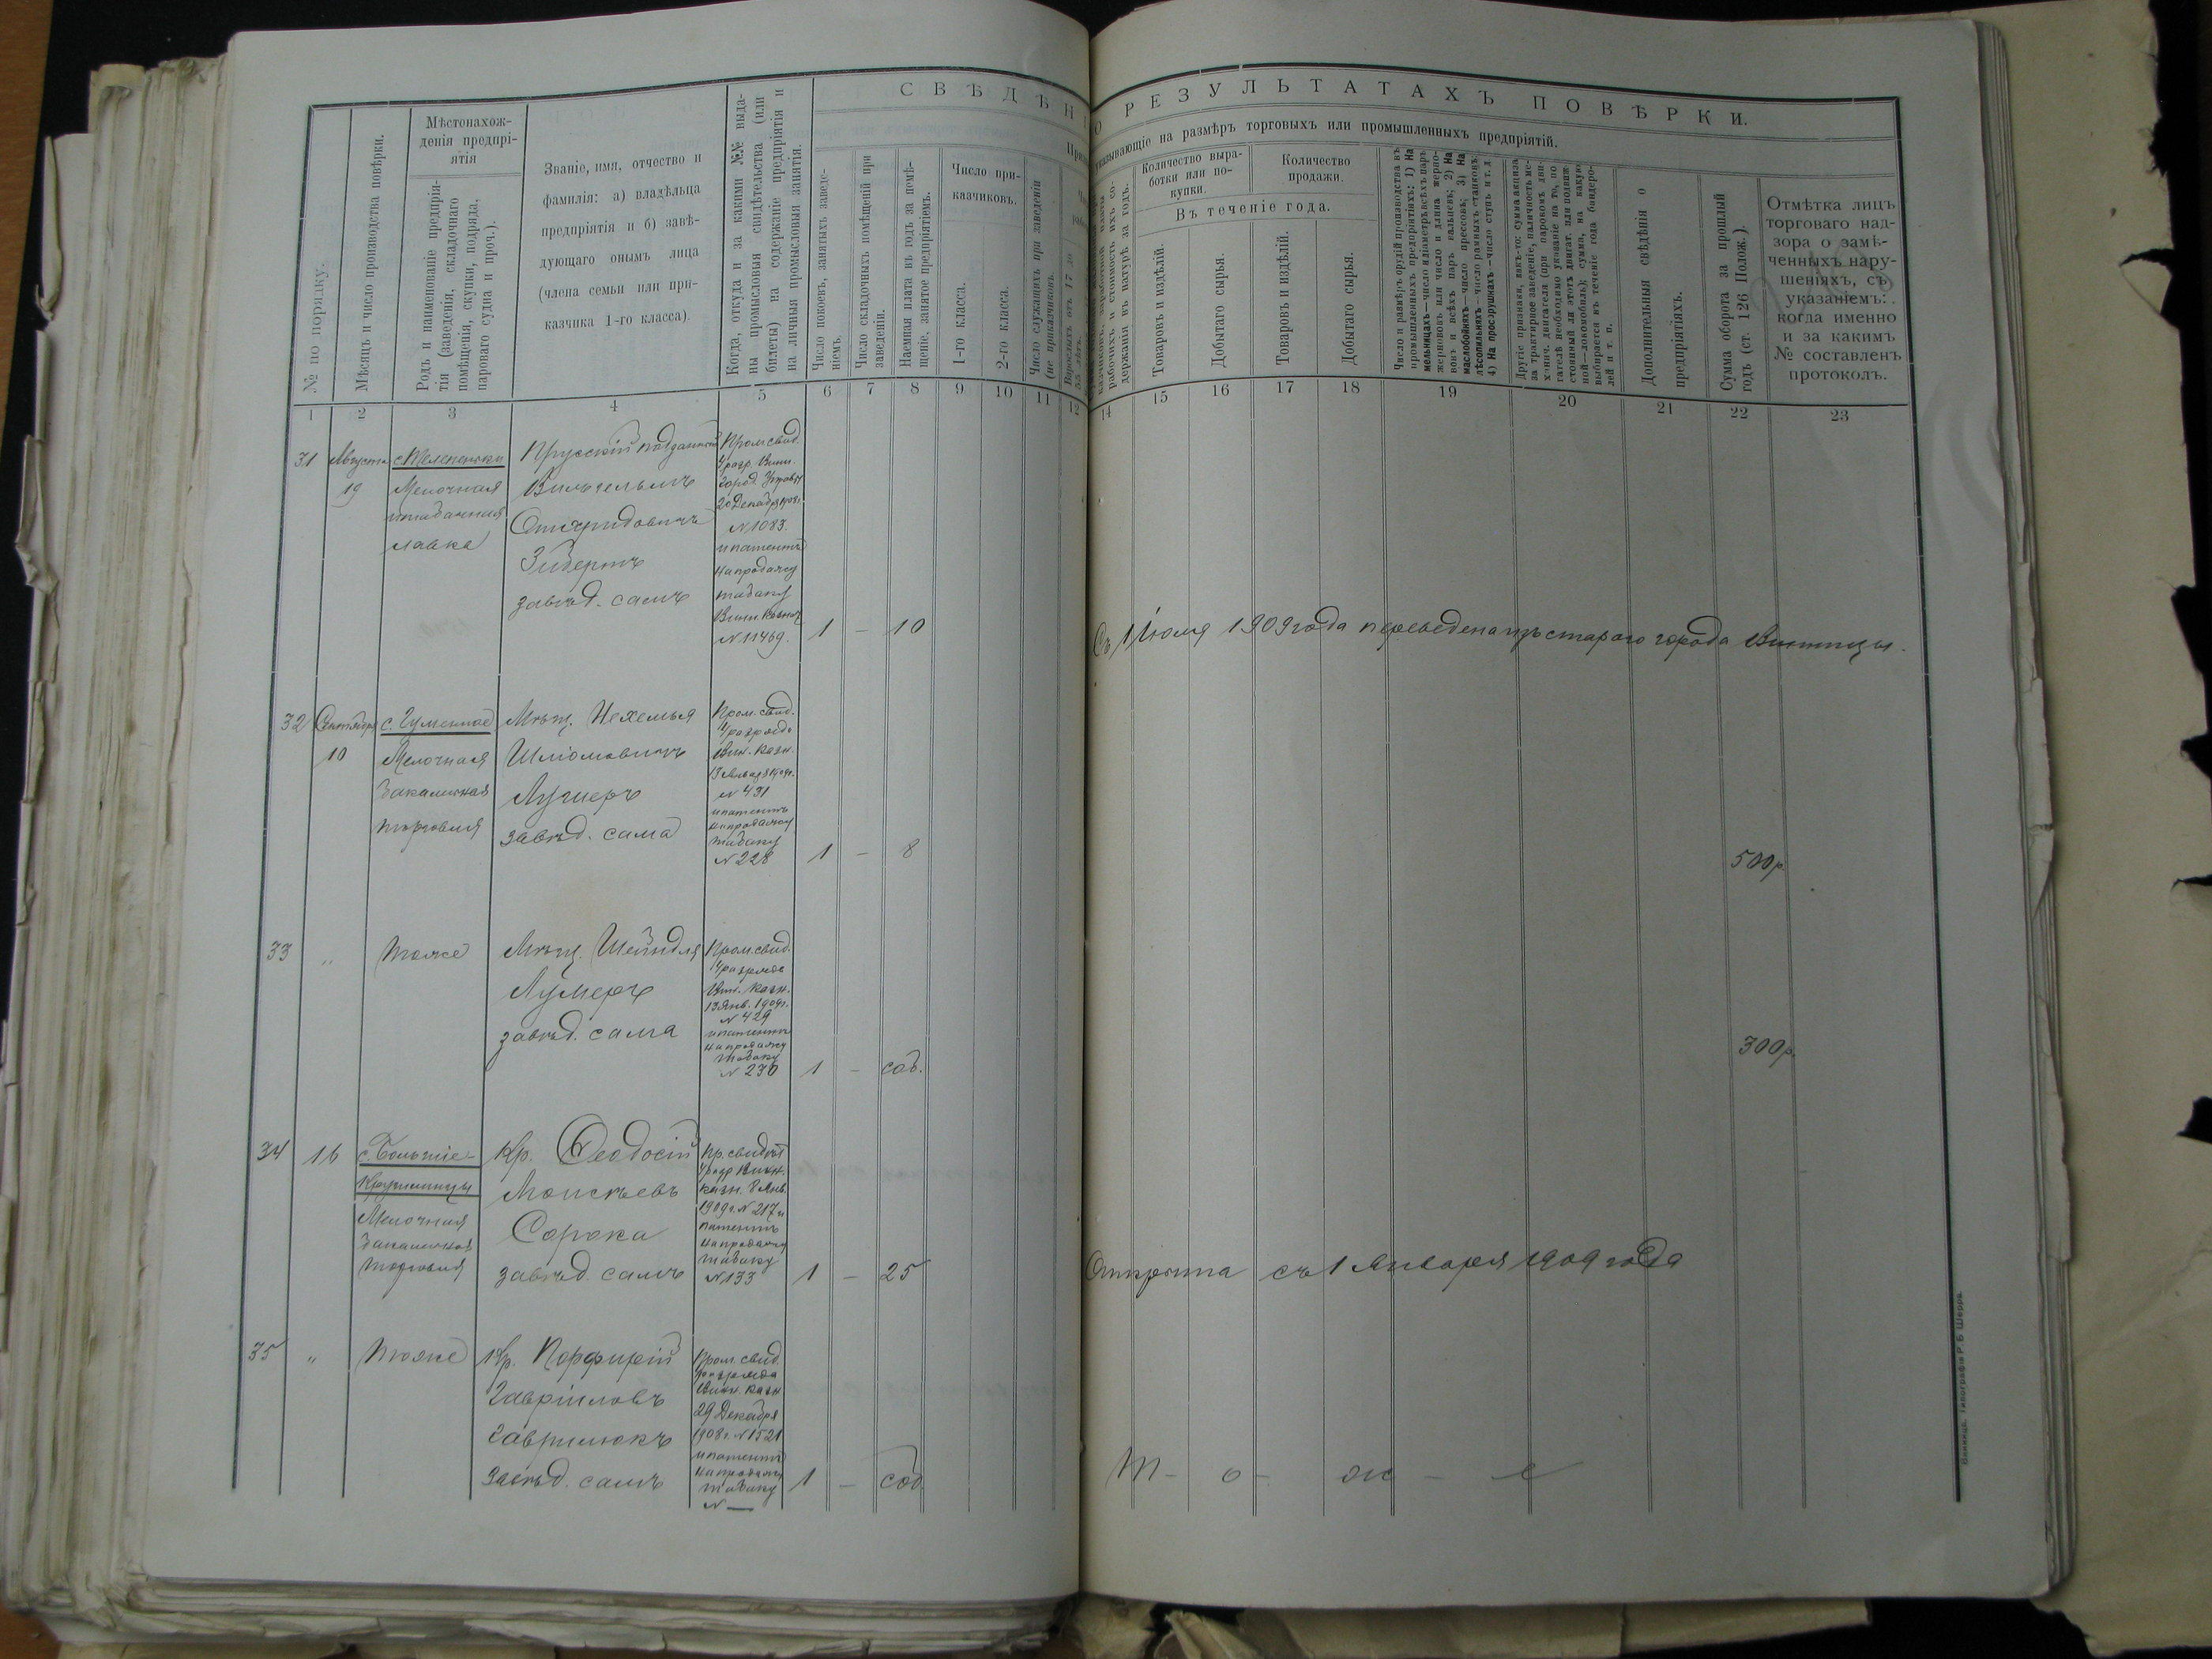 СВѢДѢН
О РЕЗУЛЬТАТАХЪ ПОВѢРКИ.
указывающіе на размѣръ торговыхъ или промышленныхъ предпріятій.
№ по порядку.
Мѣсяцъ и число производства повѣрки.
Мѣстонахож-
денія предпрі-
ятія
Родъ и наименованіе предпрія-
тія (заведенія, складочнаго
помѣщенія, скупки, подряда,
парового судна и проч.).
Званіе, имя, отчество и
фамилія: а) владѣльца
предпріятія и б) завѣ-
дующаго онымъ лица
(члена семьи или при-
казчика 1-го класса).
Когда, откуда и за какими №№ выда-
ны промысловыя свидѣтельства (или
билеты) на содержаніе предпріятія и
на личныя промысловыя занятія.
Число покоевъ, занятыхъ заведе-
ніемъ.
Число складочныхъ помѣщеній при
заведеніи.
Наемная плата въ годъ за помѣ-
щеніе, занятое предпріятіемъ.
Число при-
казчиковъ.
1-го класса.
2-го класса.
Число служащихъ при заведеніи
(не приказчиковъ).
рабочихъ и стоимость ихъ со-
держанія въ натурѣ за годъ.
Количество выра-
ботки или по-
купки.
Количество
продажи.
Въ теченіе года.
Товаровъ и издѣлій.
Добытаго сырья.
Товаровъ и издѣлій.
Добытаго сырья.
Число и размѣръ орудій производства въ
промышленныхъ предпріятіяхъ: 1) На
мельницахъ—число и діаметръ всѣхъ паръ
жернововъ или число и длина жерно-
вовъ и всѣхъ паръ вальцевъ; 2) На
маслобойняхъ—число прессовъ; 3) На
лѣсопильняхъ—число рамныхъ станковъ;
4) На просорушкахъ—число ступъ и т. д.
Другіе признаки, какъ-то: сумма акциза
за трактирное заведеніе, наличность ме-
ханич. двигателя (при паровомъ дви-
гателѣ необходимо указаніе на то, по
выбирается въ теченіе года бандеро-
лей и т. п.
Дополнительныя свѣдѣнія о
предпріятіяхъ.
Сумма оборота за прошлый
годъ (ст. 126 Полож.).
Отмѣтка лицъ
торговаго над-
зора о замѣ-
ченныхъ нару-
шеніяхъ, съ
указаніемъ:
когда именно
и за какимъ
№ составленъ
протоколъ.
1 2 3 4 5 6 7 8 9 10 11 12 14 15 16 17 18 19 20 21 22 23
31 Августа
19
Мелочная
и табачная
лавка
Прусскій подданный
Вильгельмъ
Зибертъ
завѣд. самъ
Пром. свид.
4 разр. Винн.
20 Декабря 1908 г.
№ 1083.
и патентъ
на продажу
табаку
№ 11469.
1 — 10
Съ 1 Іюля 1909 года переведена изъ стараго города Винницы.
32 Сентября
10
с. Гуменное
Мелочная
бакалейная
торговля
Мѣщ. Нехемья
Шліомовичъ
завѣд. сама
Пром. свид.
4 разряда
Вин. Казн.
№ 431
и патентъ
на продажу
табаку
№ 228
1 — 8
500 р.
33 „ Тоже
Мѣщ. Шейндля
Лумеръ
завѣд. сама
Пром. свид.
4 разряда
Вин. Казн.
13 Янв. 1909 г.
№ 429
и патентъ
на продажу
табаку
№ 230
1 — соб.
300 р.
34 16
с. Большіе-
Крушлинцы
Мелочная
бакалейная
торговля
Кр. Ѳеодосій
Моисѣевъ
Сорока
завѣд. самъ
Пр. свидѣт
4 разр. Винн.
казн. 8 Янв.
1909 г. № 217 и
патентъ
на продажу
табаку
№ 133
1 — 25
Открыта съ 1 Января 1909 года
35 „ Тоже
Кр. Порфирій
Гавріиловъ
Гаврилюкъ
Завѣд. самъ
Пром. свид.
4 разряда
Винн. Казн
29 Декабря
1908 г. № 1521
и патентъ
на продажу
табаку
№ —
1 — соб.
Т — о — ж — е
Винница. Типографія Р. Б. Шерра.